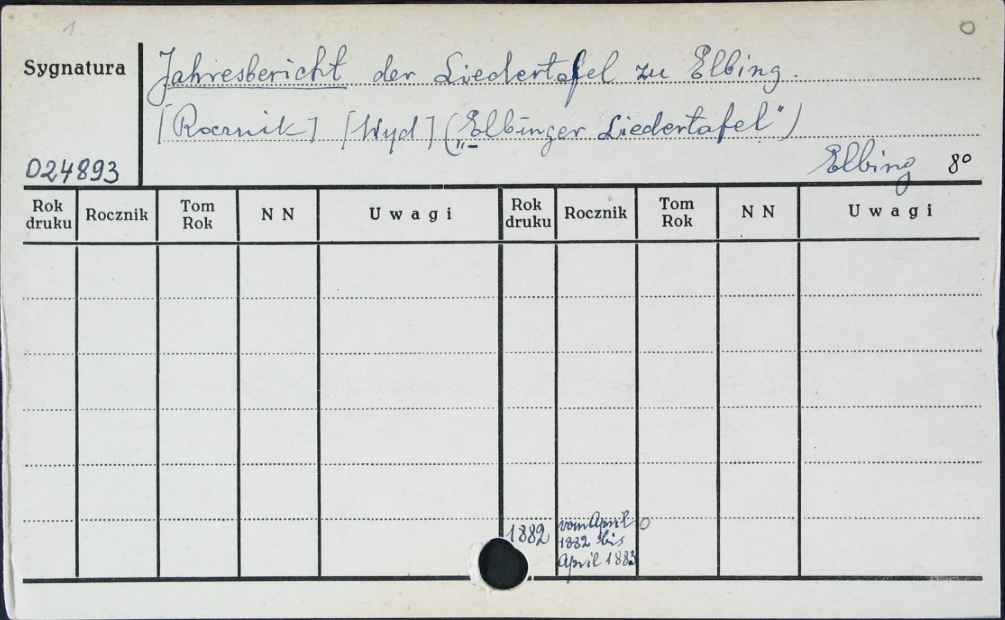 1 0
Sygnatura
Jahresbericht der Liedertafel zu Elbing.
[Rocznik] [Wyd] („Elbinger Liedertafel")
D24893
Elbing 8°
Rok druku Rocznik Tom Rok N N Uwagi Rok druku Rocznik Tom Rok N N Uwagi
1882 vom April 0
1882 bis
April 1883